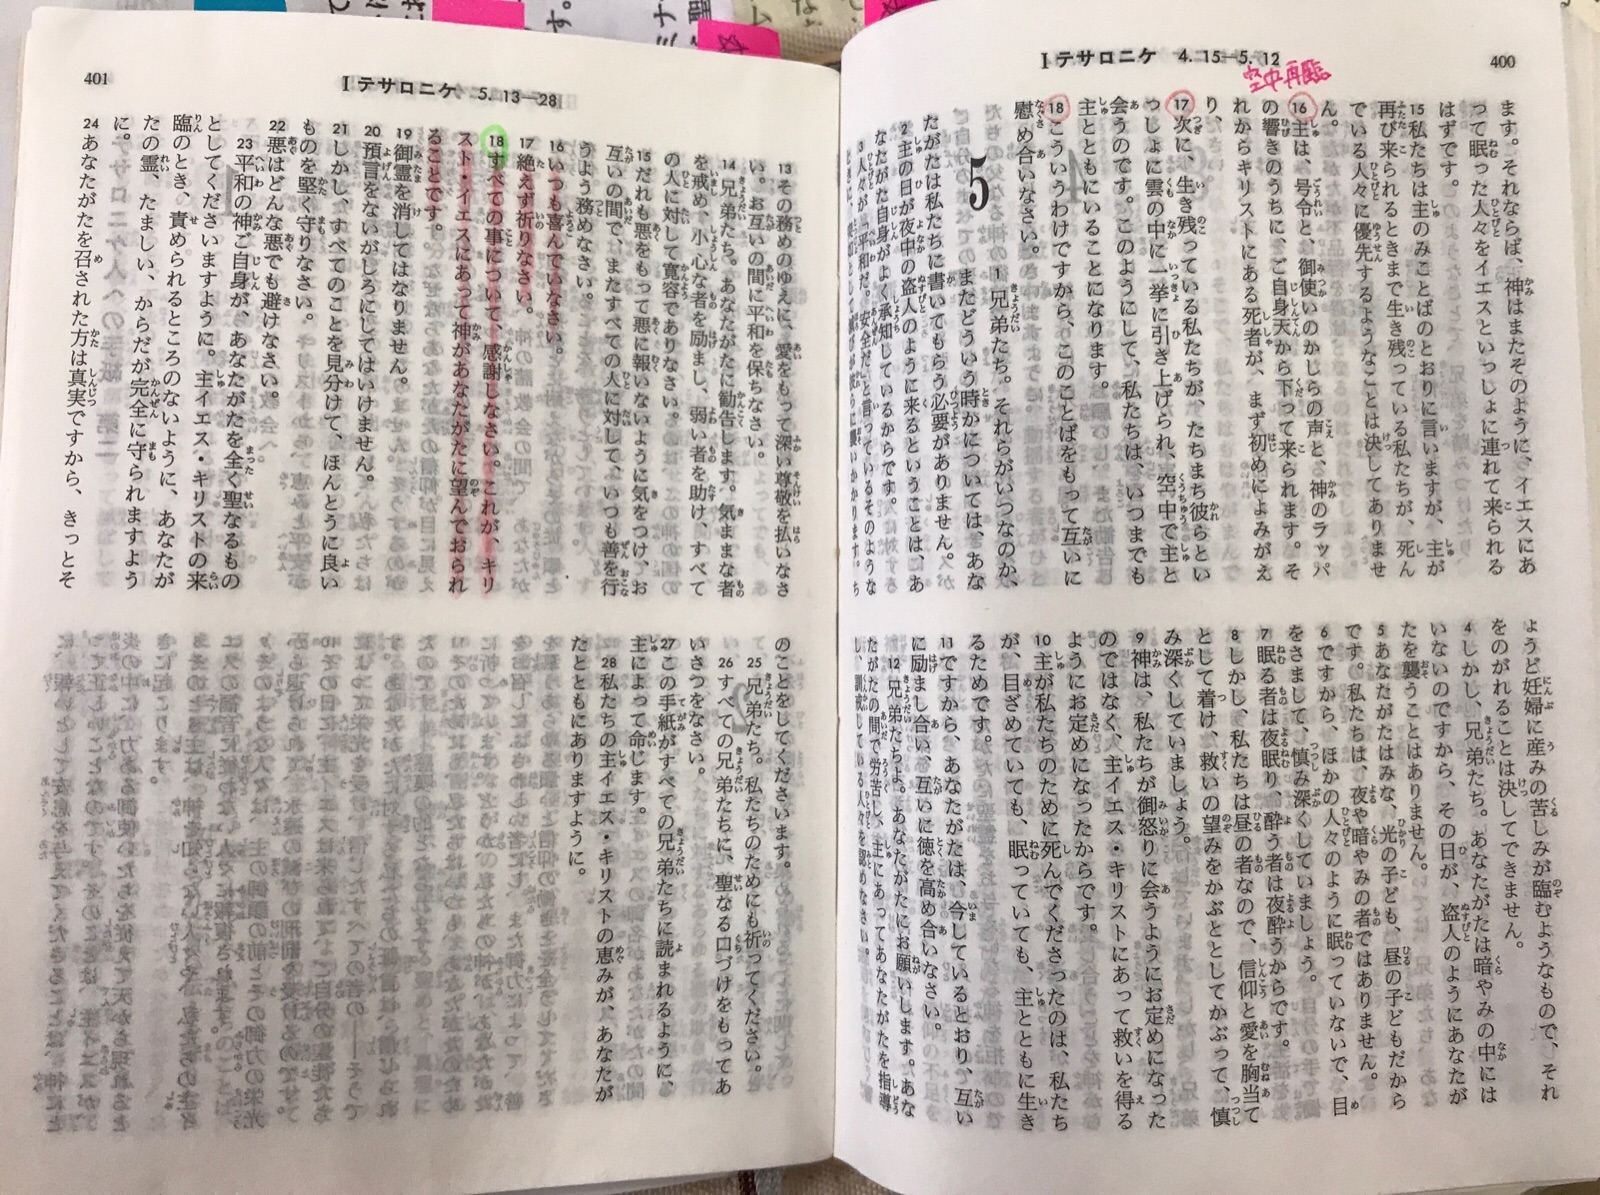 400
Ⅰテサロニケ 4.15―5.12
空中再臨
ます。それならば、神はまたそのように、イエスにあ
って眠った人々をイエスといっしょに連れて来られる
はずです。
15 私たちは主のみことばのとおりに言いますが、主が
再び来られるときまで生き残っている私たちが、死ん
でいる人々に優先するようなことは決してありませ
ん。
16 主は、号令と、御使いのかしらの声と、神のラッパ
の響きのうちに、ご自身天から下って来られます。そ
れからキリストにある死者が、まず初めによみがえ
り、
17 次に、生き残っている私たちが、たちまち彼らとい
っしょに雲の中に一挙に引き上げられ、空中で主と
会うのです。このようにして、私たちは、いつまでも
主とともにいることになります。
18 こういうわけですから、このことばをもって互いに
慰め合いなさい。
5
1 兄弟たち。それらがいつなのか、
またどういう時かについては、あな
たがたは私たちに書いてもらう必要がありません。
2 主の日が夜中の盗人のように来るということは、あ
なたがた自身がよく承知しているからです。
3 人々が「平和だ。安全だ」と言っているそのような
ょうど妊婦に産みの苦しみが臨むようなもので、それ
をのがれることは決してできません。
4 しかし、兄弟たち。あなたがたは暗やみの中には
いないのですから、その日が、盗人のようにあなたが
たを襲うことはありません。
5 あなたがたはみな、光の子ども、昼の子どもだから
です。私たちは、夜や暗やみの者ではありません。
6 ですから、ほかの人々のように眠っていないで、目
をさまして、慎み深くしていましょう。
7 眠る者は夜眠り、酔う者は夜酔うからです。
8 しかし、私たちは昼の者なので、信仰と愛を胸当て
として着け、救いの望みをかぶととしてかぶって、慎
み深くしていましょう。
9 神は、私たちが御怒りに会うようにお定めになった
のではなく、主イエス・キリストにあって救いを得る
ようにお定めになったからです。
10 主が私たちのために死んでくださったのは、私たち
が、目ざめていても、眠っていても、主とともに生き
るためです。
11 ですから、あなたがたは、今しているとおり、互い
に励まし合い、互いに徳を高め合いなさい。
12 兄弟たちよ。あなたがたにお願いします。あな
たがたの間で労苦し、主にあってあなたがたを指導
し、訓戒している人々を認めなさい。
401
Ⅰテサロニケ 5.13―28
13 その務めのゆえに、愛をもって深い尊敬を払いなさ
い。お互いの間に平和を保ちなさい。
14 兄弟たち。あなたがたに勧告します。気ままな者
を戒め、小心な者を励まし、弱い者を助け、すべて
の人に対して寛容でありなさい。
15 だれも悪をもって悪に報いないように気をつけ、お
互いの間で、またすべての人に対して、いつも善を行
うよう務めなさい。
16 いつも喜んでいなさい。
17 絶えず祈りなさい。
18 すべての事について、感謝しなさい。これが、キリ
スト・イエスにあって神があなたがたに望んでおられ
ることです。
19 御霊を消してはなりません。
20 預言をないがしろにしてはいけません。
21 しかし、すべてのことを見分けて、ほんとうに良い
ものを堅く守りなさい。
22 悪はどんな悪でも避けなさい。
23 平和の神ご自身が、あなたがたを全く聖なるもの
としてくださいますように。主イエス・キリストの来
臨のとき、責められるところのないように、あなたが
たの霊、たましい、からだが完全に守られますよう
に。
24 あなたがたを召された方は真実ですから、きっとそ
のことをしてくださいます。
25 兄弟たち。私たちのためにも祈ってください。
26 すべての兄弟たちに、聖なる口づけをもってあ
いさつをなさい。
27 この手紙がすべての兄弟たちに読まれるように、
主によって命じます。
28 私たちの主イエス・キリストの恵みが、あなたが
たとともにありますように。